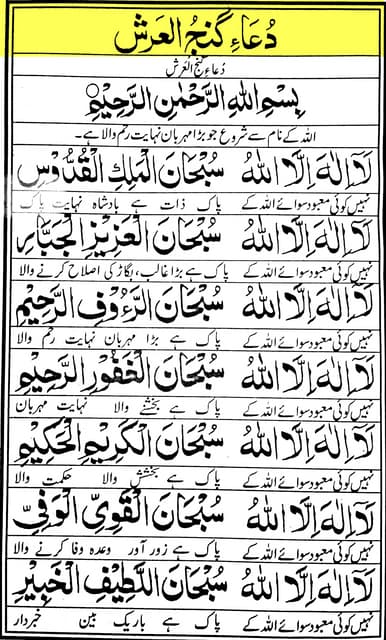 دُعَاءِ گنجُ العَرش
دُعَاءِ گنجُ العَرش
بِسْمِ اللهِ الرَّحْمٰنِ الرَّحِيْمِ
اللہ کے نام سے شروع جو بڑا مہربان نہایت رحم والا ہے۔
لَآ اِلٰهَ اِلَّا اللهُ سُبْحَانَ الْمَلِكِ الْقُدُّوْسِ
نہیں کوئی معبود سوائے اللہ کے پاک ذات ہے بادشاہ نہایت پاک
لَآ اِلٰهَ اِلَّا اللهُ سُبْحَانَ الْعَزِيْزِ الْجَبَّارِ
نہیں کوئی معبود سوائے اللہ کے پاک ہے بڑا غالب، بگاڑ کی اصلاح کرنے والا
لَآ اِلٰهَ اِلَّا اللهُ سُبْحَانَ الرَّءُوْفِ الرَّحِيْمِ
نہیں کوئی معبود سوائے اللہ کے پاک ہے بڑا مہربان نہایت رحم والا
لَآ اِلٰهَ اِلَّا اللهُ سُبْحَانَ الْغَفُوْرِ الرَّحِيْمِ
نہیں کوئی معبود سوائے اللہ کے پاک ہے بخشنے والا نہایت مہربان
لَآ اِلٰهَ اِلَّا اللهُ سُبْحَانَ الْكَرِيْمِ الْحَكِيْمِ
نہیں کوئی معبود سوائے اللہ کے پاک ہے بخشش والا حکمت والا
لَآ اِلٰهَ اِلَّا اللهُ سُبْحَانَ الْقَوِيِّ الْوَفِيِّ
نہیں کوئی معبود سوائے اللہ کے پاک ہے زور آور وعدہ وفا کرنے والا
لَآ اِلٰهَ اِلَّا اللهُ سُبْحَانَ اللَّطِيْفِ الْخَبِيْرِ
نہیں کوئی معبود سوائے اللہ کے پاک ہے باریک بین خبردار